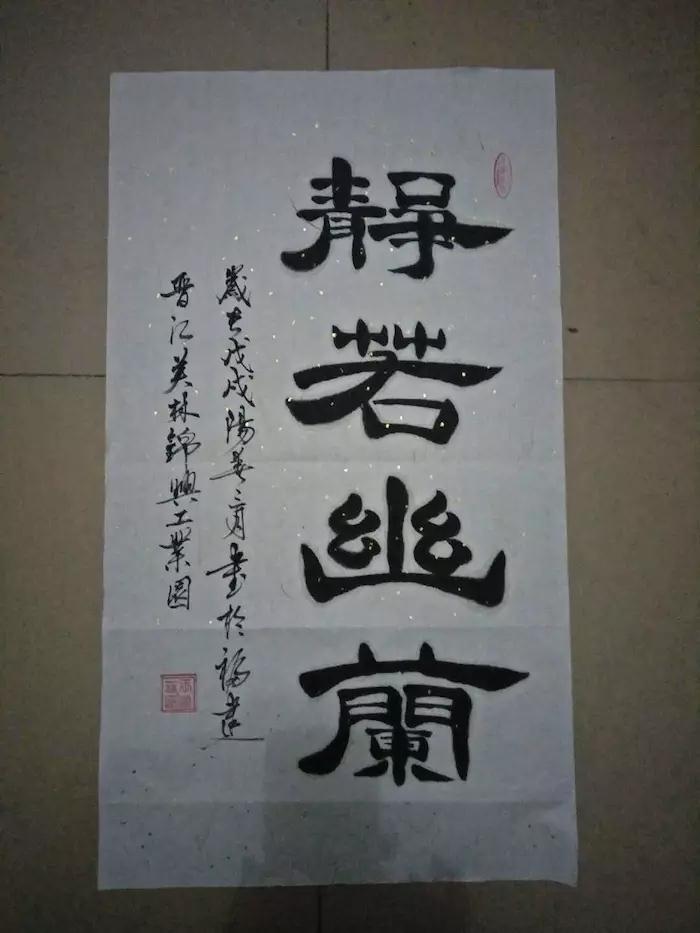 靜若幽蘭
歲在戊戌陽春三月書於福建
晉江美林錦興工業園